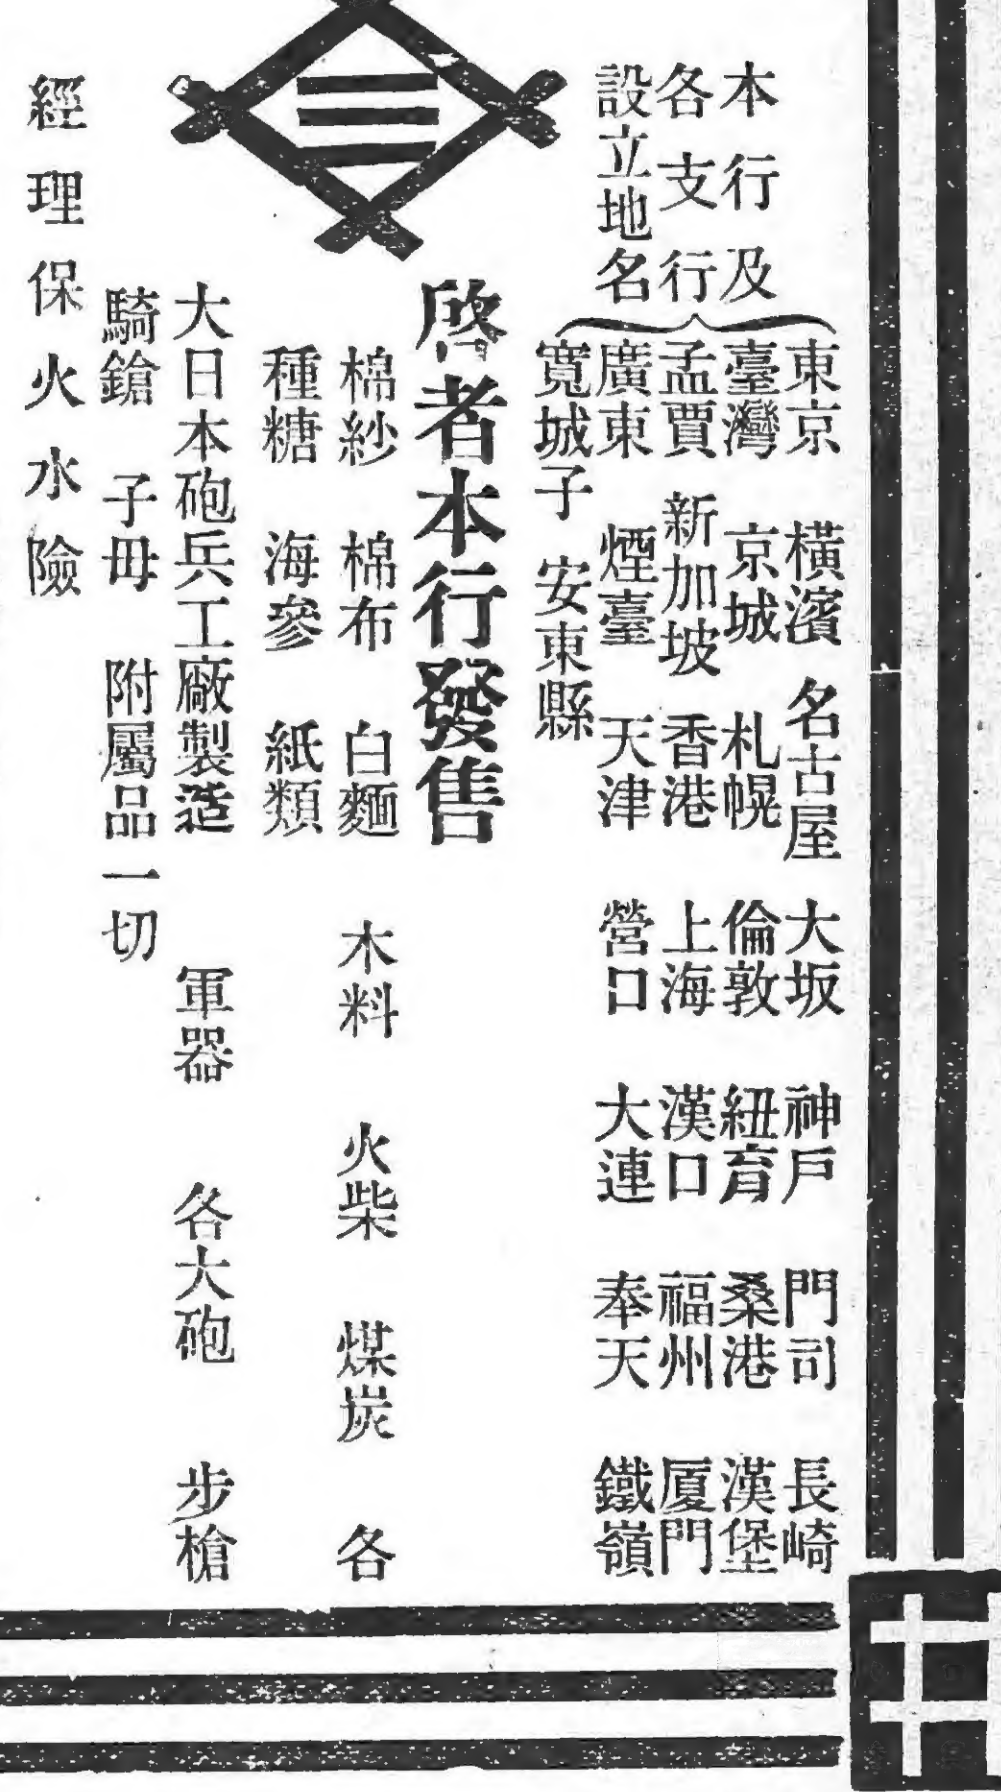 本行及
各支行
設立地名
東京 橫濱 名古屋 大坂 神戶 門司 長崎
臺灣 京城 札幌 倫敦 紐育 桑港 漢堡
孟買 新加坡 香港 上海 漢口 福州 厦門
廣東 煙臺 天津 營口 大連 奉天 鐵嶺
寬城子 安東縣
三
啓者本行發售
棉紗 棉布 白麵 木料 火柴 煤炭 各
種糖 海參 紙類
大日本砲兵工廠製造 軍器 各大砲 步槍
騎鎗 子母 附屬品一切
經理保火水險